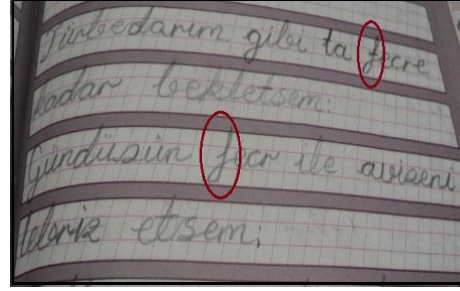 Türbedarım gibi ta fecre
kadar bekletsem;
Gündüzün fecr ile avizeni
lebriz etsem;